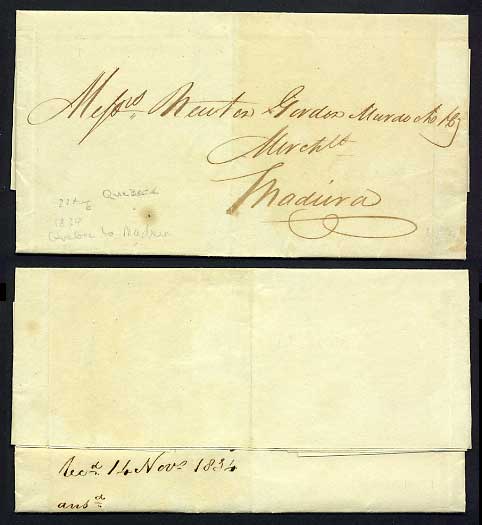 Messrs Newton Gordon Murdoch & Co
Merchts
Madeira
Quebec
1834
Quebec to Madeira
Recd 14 Novr 1834
ansd